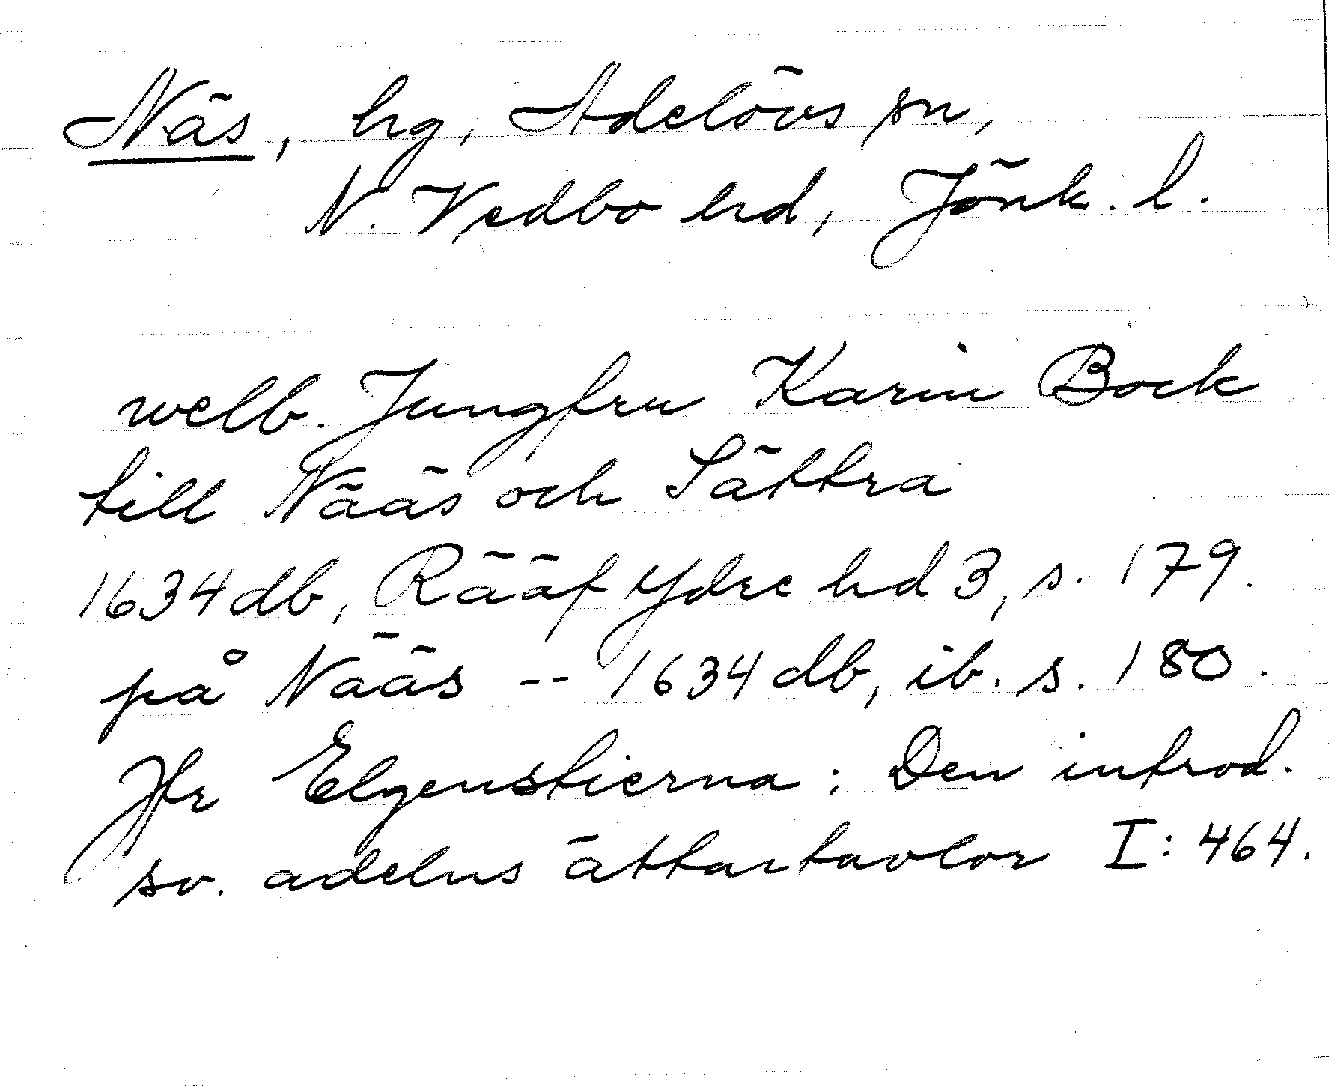 Näs, hg, Adelövs sn,
N. Vedbo hd, Jönk. l.
welb. Jungfru Karin Bock
till Nääs och Sättra
1634 db, Rääf Ydre hd 3, s. 179.
på Nääs -- 1634 db, ib. s. 180.
Jfr Elgenstierna: Den introd.
sv. adelns ättartavlor I: 464.